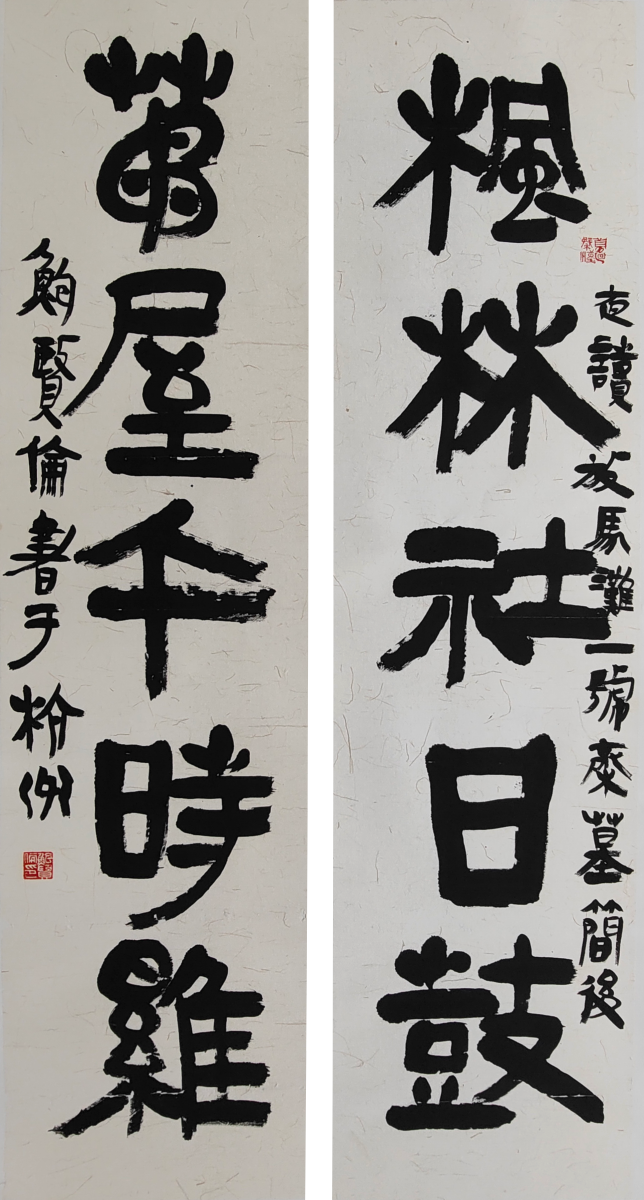 夜讀放馬灘一號秦墓簡後
楓林社日鼓
茅屋午時雞
鮑賢倫書于